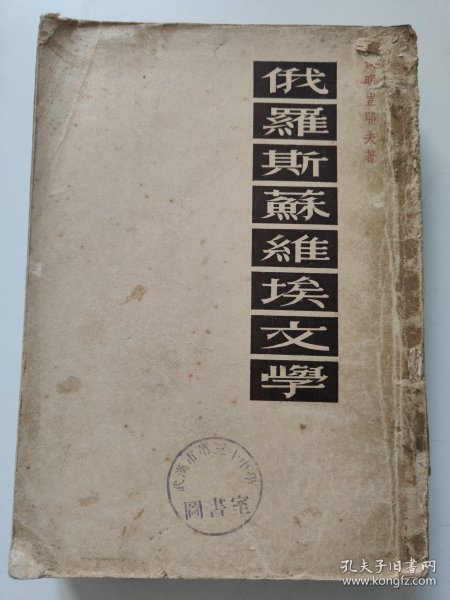 俄羅斯蘇維埃文學
耶夫著
武漢市第三十中學
圖書室
孔夫子旧书网
www.kongfz.com